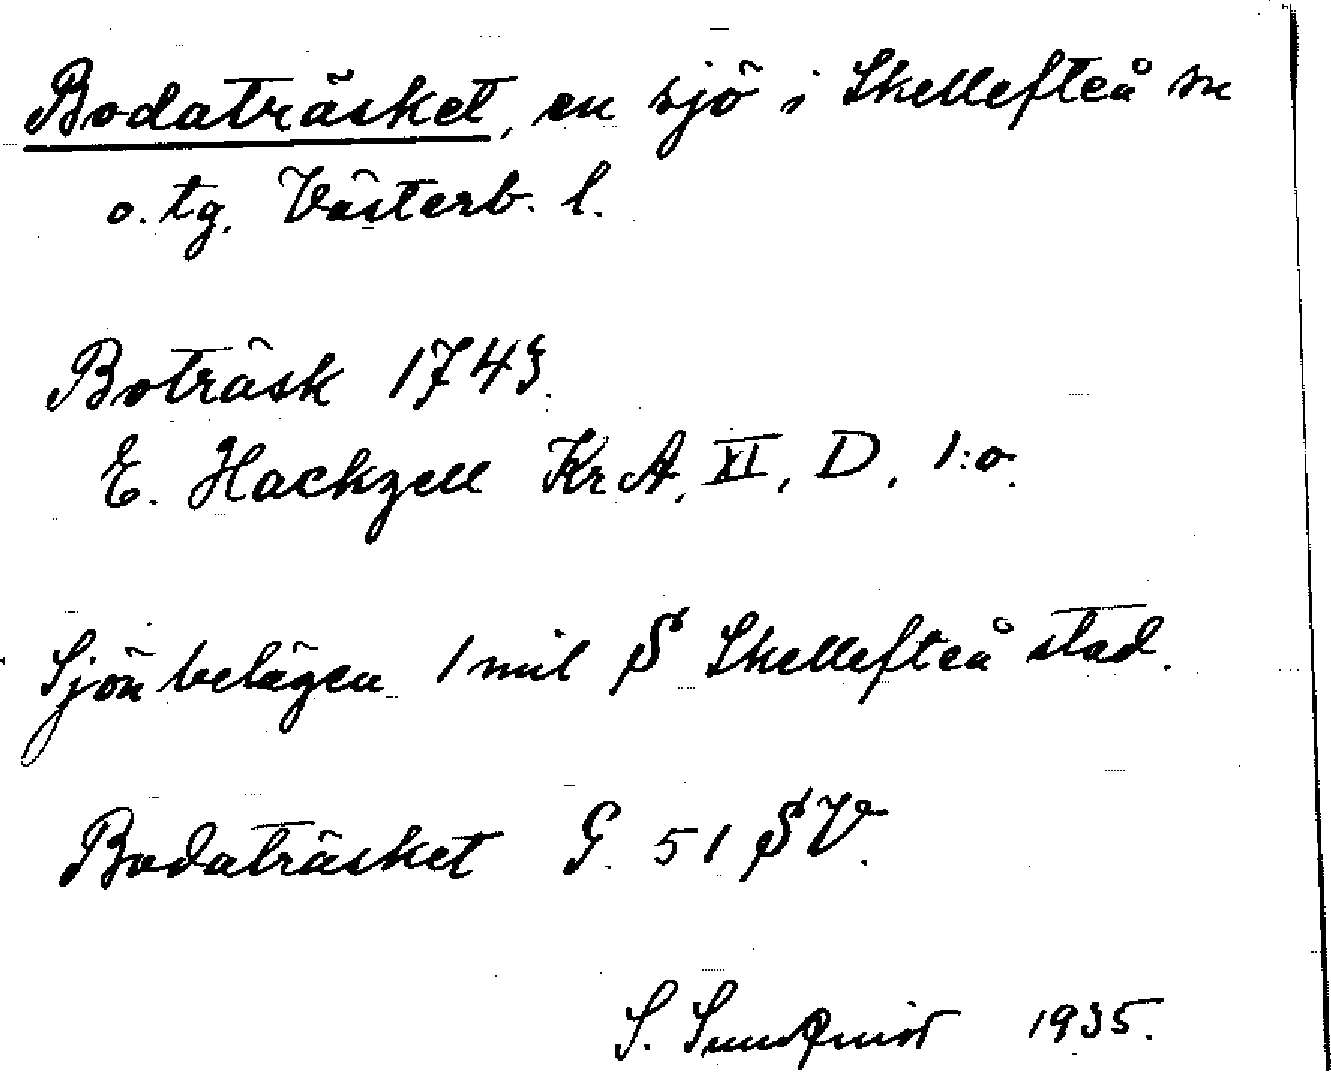 Bodaträsket, en sjö i Skellefteå sn
o. tg. Västerb. l.
Boträsk 1743.
E. Hackzell KrA, XI, D, 1:o.
Sjön belägen 1 mil S Skellefteå stad.
Bodaträsket G. 51 SV.
S. Sundqvist 1935.